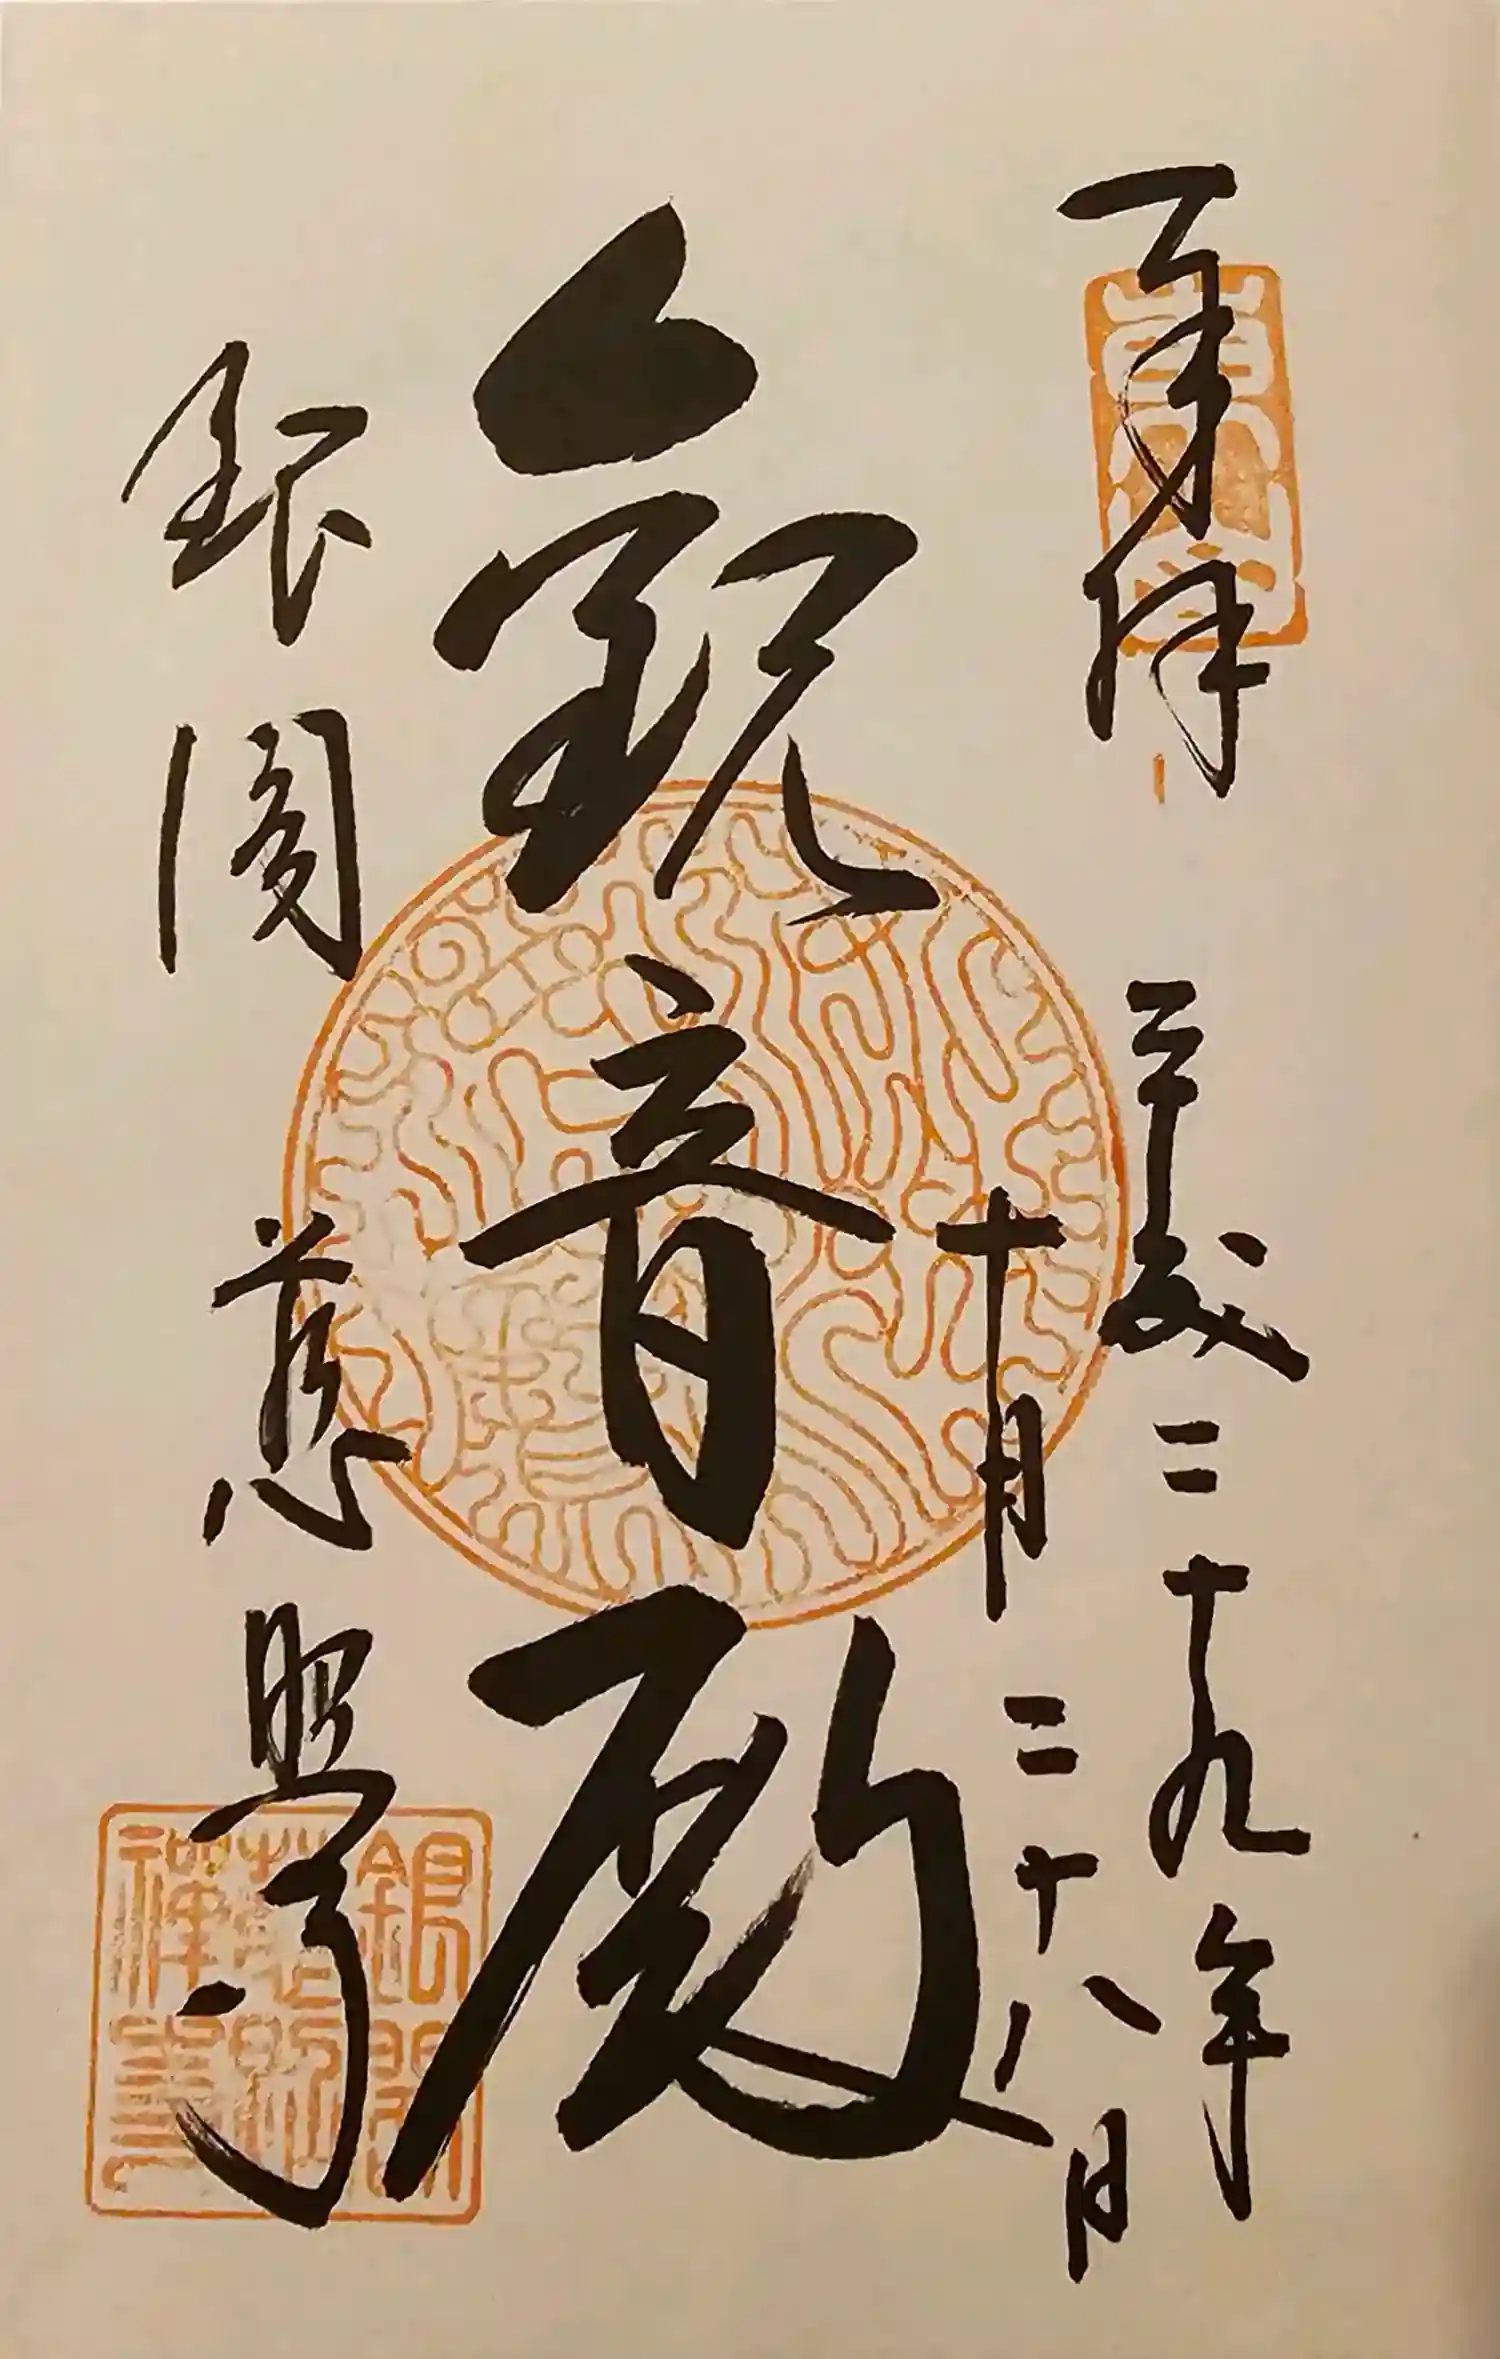 奉拝
平成二十九年
十月二十八日
観音殿
銀閣 慈照寺
銀閣
慈照
禅寺